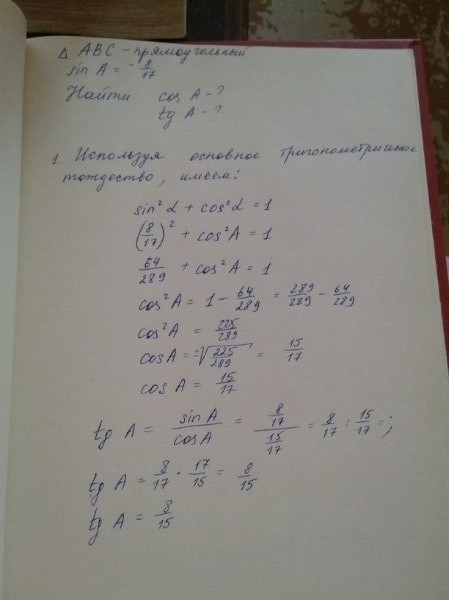 Δ ABC – прямоугольный
sin A = 8/17
Найти cos A – ?
tg A – ?
1. Используя основное тригонометрическое
тождество, имеем:
sin²α + cos²α = 1
(8/17)² + cos²A = 1
64/289 + cos²A = 1
cos²A = 1 - 64/289 = 289/289 - 64/289
cos²A = 225/289
cosA = √(225/289) = 15/17
cos A = 15/17
tg A = sinA/cosA = (8/17)/(15/17) = 8/17 : 15/17 = ;
tg A = 8/17 · 17/15 = 8/15
tg A = 8/15